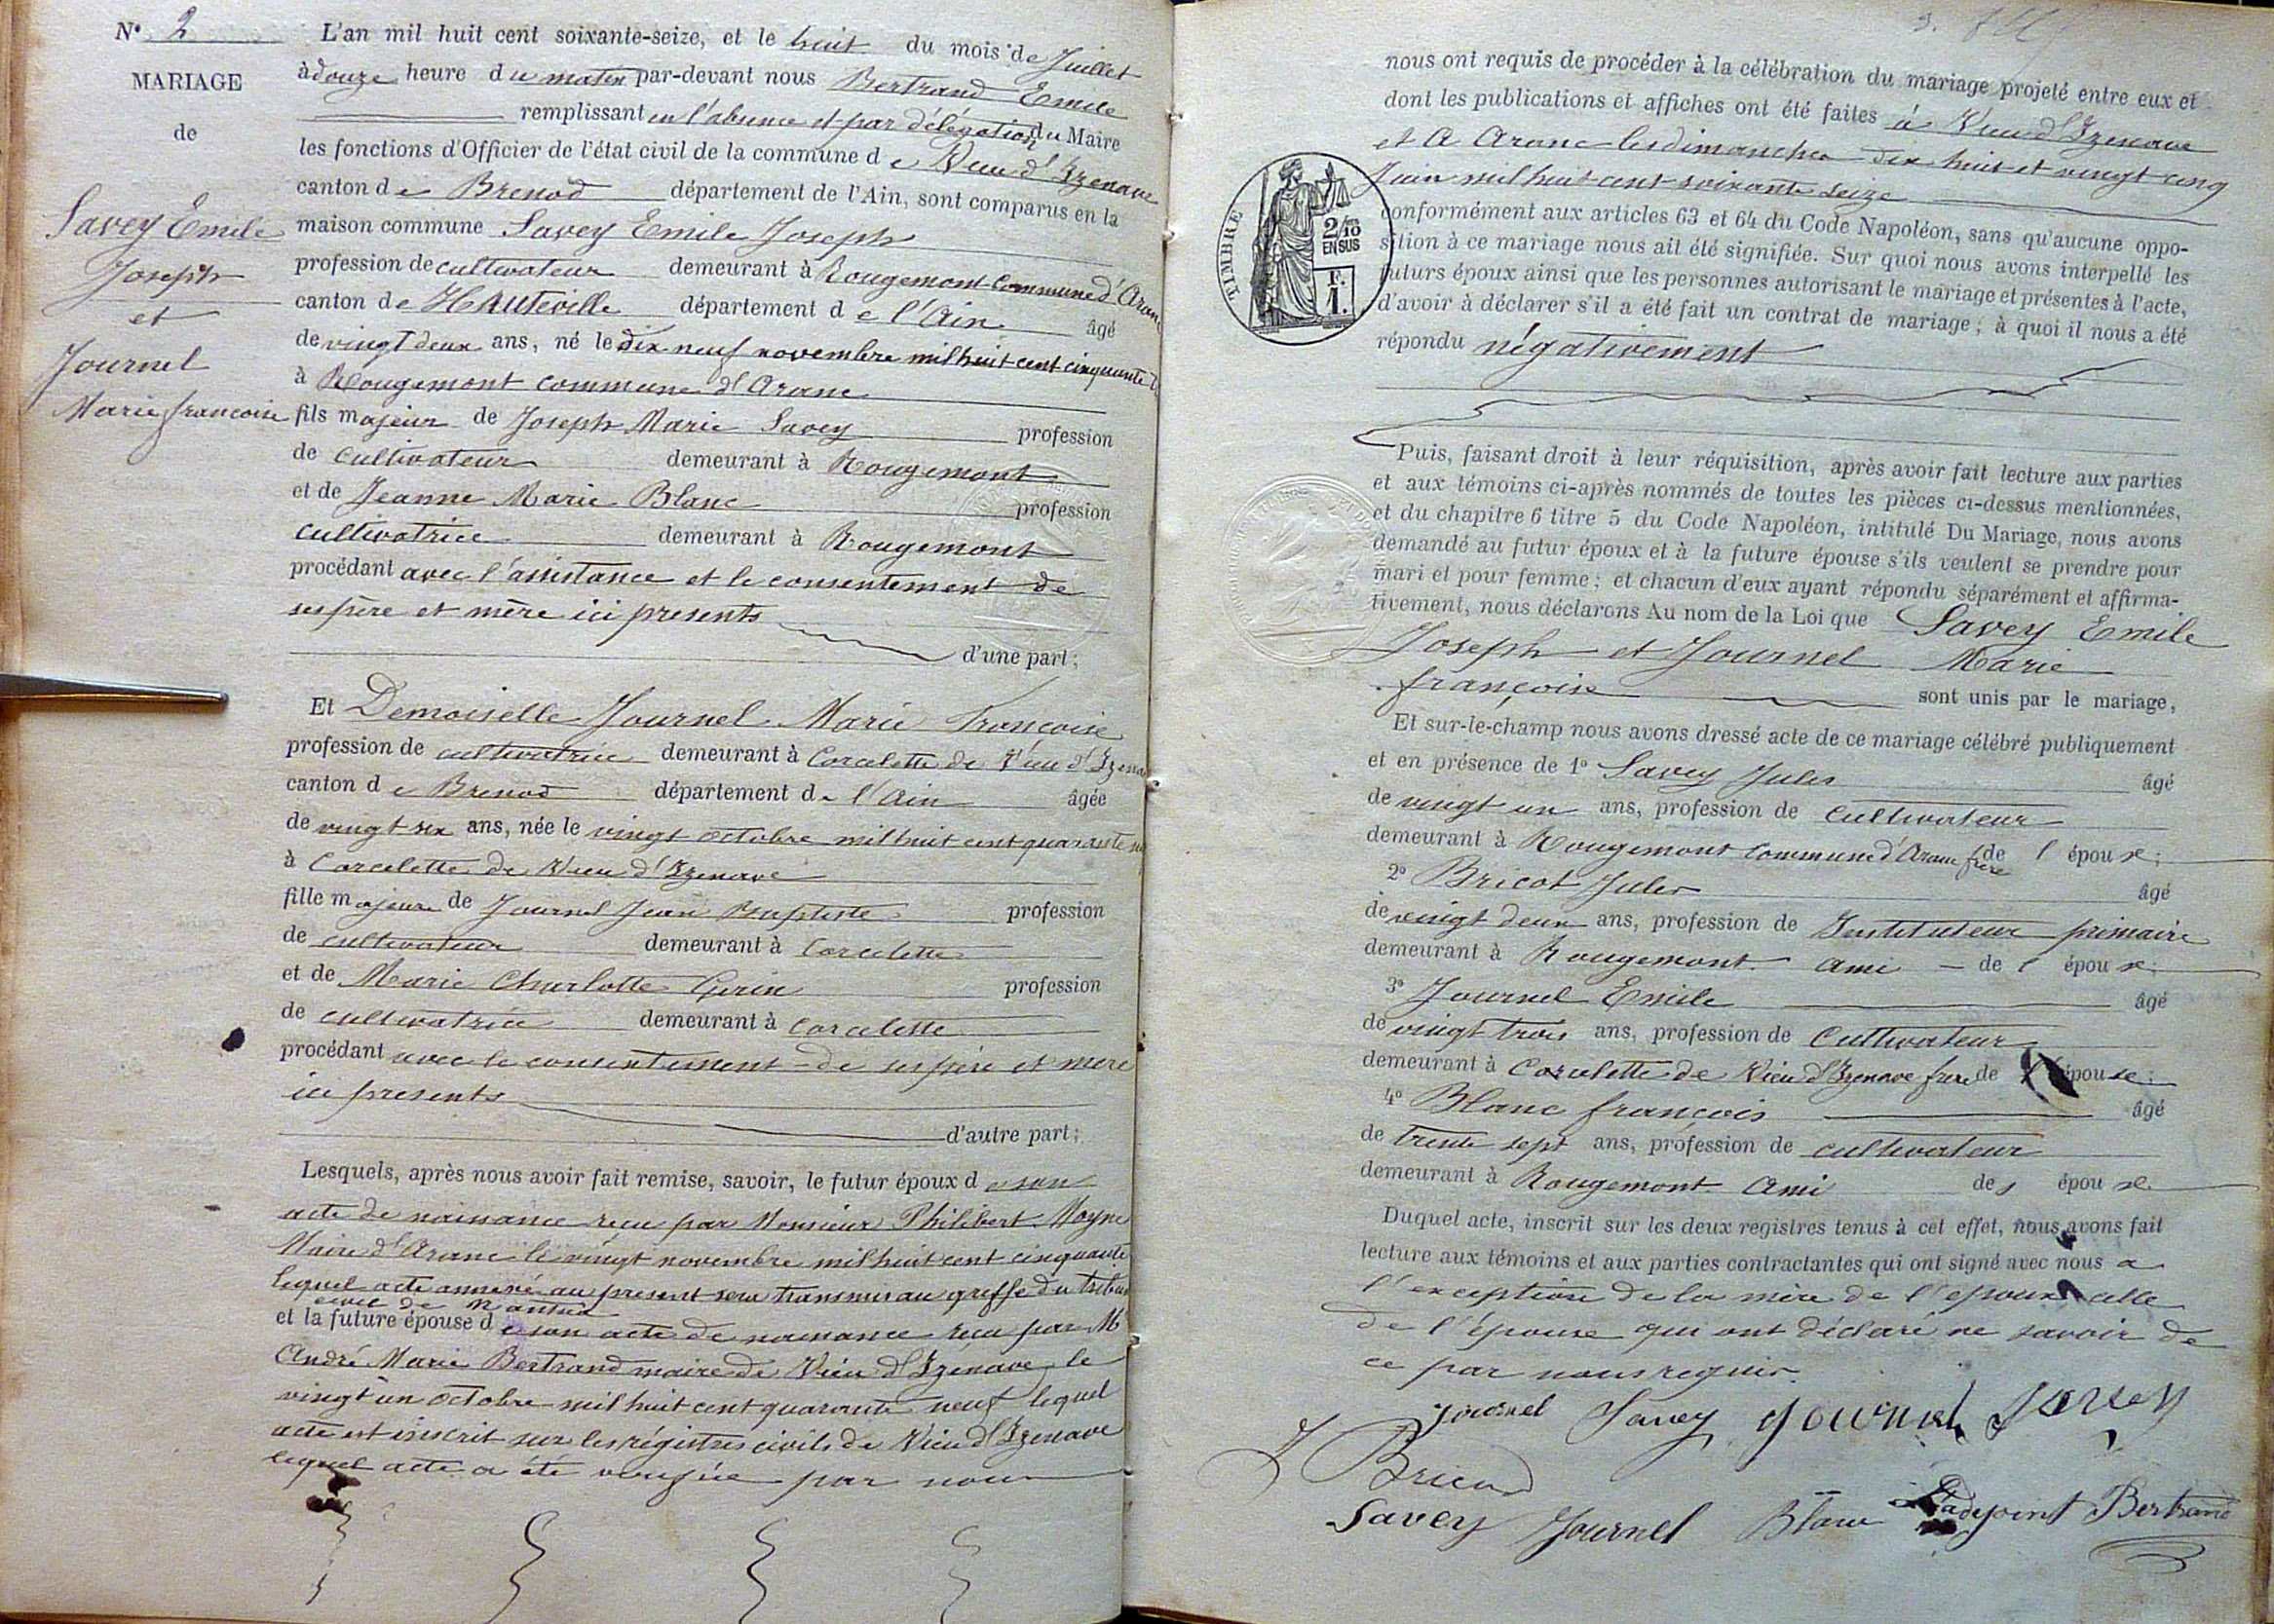 N° 2
MARIAGE
de
Savey Emile
Joseph
et
Journel
Marie francoise
L'an mil huit cent soixante-seize, et le huit du mois de Juillet
à douze heure du matin par-devant nous Bertrand Emile
remplissant en l'absence et par délégation du Maire
les fonctions d'Officier de l'état civil de la commune d e Vieu d'Izenave
canton d e Brenod département de l'Ain, sont comparus en la
maison commune Savey Emile Joseph
profession de cultivateur demeurant à Rougemont Commune d'Aranc
canton de Hauteville département d e l'Ain âgé
de vingt deux ans, né le dix neuf novembre mil huit cent cinquante
à Rougemont commune d'Aranc
fils majeur de Joseph Marie Savey profession
de cultivateur demeurant à Rougemont
et de Jeanne Marie Blanc profession
cultivatrice demeurant à Rougemont
procédant avec l'assistance et le consentement de
ses père et mère ici presents
d'une part;
Et Demoiselle Journel Marie Françoise
profession de cultivatrice demeurant à Corcelette de Vieu d'Izena
canton d e Brenod département d e l'Ain âgée
de vingt six ans, née le vingt octobre mil huit cent quarante
à Corcelette de Vieu d'Izenave
fille majeure de Journel Jean Baptiste profession
de cultivateur demeurant à Corcelette
et de Marie Charlotte Gerin profession
de cultivatrice demeurant à Corcelette
procédant avec le consentement de ses père et mere
ici presents
d'autre part;
Lesquels, après nous avoir fait remise, savoir, le futur époux d e son
acte de naissance reçu par Monsieur Philibert Moyne
Maire d'Aranc le vingt novembre mil huit cent cinquante
lequel acte annexé au présent sera transmis au greffe du tribun
civil de Nantua
et la future épouse d e son acte de naissance reçu par M
André Marie Bertrand maire de Vieu d'Izenave le
vingt un octobre mil huit cent quarante neuf lequel
acte est inscrit sur les régistres civils de Vieu d'Izenave
lequel acte a été vérifiée par nous
nous ont requis de procéder à la célébration du mariage projeté entre eux et
dont les publications et affiches ont été faites à Vieu d'Izenave
et A Aranc les dimanches dix huit et vingt cinq
Juin mil huit cent soixante seize
conformément aux articles 63 et 64 du Code Napoléon, sans qu'aucune oppo-
sition à ce mariage nous ait été signifiée. Sur quoi nous avons interpellé les
futurs époux ainsi que les personnes autorisant le mariage et présentes à l'acte,
d'avoir à déclarer s'il a été fait un contrat de mariage; à quoi il nous a été
répondu négativement
TIMBRE
2/10
EN SUS
F.
1.
Puis, faisant droit à leur réquisition, après avoir fait lecture aux parties
et aux témoins ci-après nommés de toutes les pièces ci-dessus mentionnées,
et du chapitre 6 titre 5 du Code Napoléon, intitulé Du Mariage, nous avons
demandé au futur époux et à la future épouse s'ils veulent se prendre pour
mari et pour femme; et chacun d'eux ayant répondu séparément et affirma-
tivement, nous déclarons Au nom de la Loi que Savey Emile
Joseph et Journel Marie
françoise sont unis par le mariage,
Et sur-le-champ nous avons dressé acte de ce mariage célébré publiquement
et en présence de 1° Savey Jules âgé
de vingt un ans, profession de Cultivateur
demeurant à Rougemont Commune d'Aranc frère de l épou x;
2° Bricot Jules âgé
de vingt deux ans, profession de Instituteur primaire
demeurant à Rougemont ami de l épou x;
3° Journel Emile âgé
de vingt trois ans, profession de Cultivateur
demeurant à Corcelette de Vieu d'Izenave frere de l'épou se;
4° Blanc françois âgé
de trente sept ans, profession de cultivateur
demeurant à Rougemont Ami des épou x.
Duquel acte, inscrit sur les deux registres tenus à cet effet, nous avons fait
lecture aux témoins et aux parties contractantes qui ont signé avec nous a
l'exception de la mère de l'époux celle
de l'épouse qui ont déclaré ne savoir de
ce par nous requis.
Journel Savey Journel Savey
J Bricod
Savey Journel Blanc L'adjoint Bertrand